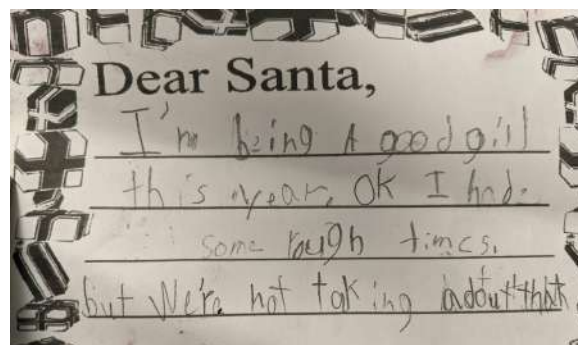 Dear Santa,
I'm being A good gill
this year, OK I had
some rough times.
but We're not taking adout that